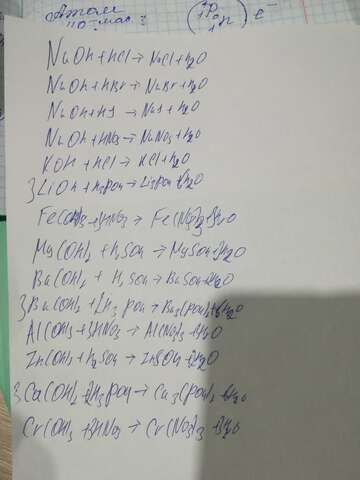 Атом
NaOh + HCl → NaCl + H2O
NaOh + HBr → NaBr + H2O
NaOh + HJ → NaJ + H2O
NaOh + HNO3 → NaNO3 + H2O
KOH + HCl → KCl + H2O
3LiOh + H3PO4 → Li3PO4 + 3H2O
Fe(OH)3 + 3HNO3 → Fe(NO3)3 + 3H2O
Mg(OH)2 + H2SO4 → MgSO4 + 2H2O
Ba(OH)2 + H2SO4 → BaSO4 + 2H2O
3Ba(OH)2 + 2H3PO4 → Ba3(PO4)2 + 6H2O
Al(OH)3 + 3HNO3 → Al(NO3)3 + 3H2O
Zn(OH)2 + H2SO4 → ZnSO4 + 2H2O
3Ca(OH)2 + 2H3PO4 → Ca3(PO4)2 + 6H2O
Cr(OH)3 + 3HNO3 → Cr(NO3)3 + 3H2O